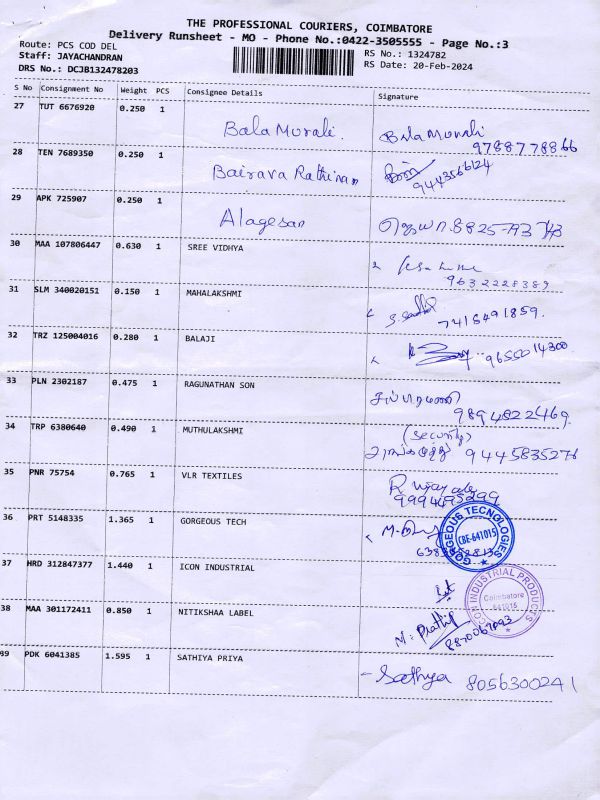 THE PROFESSIONAL COURIERS, COIMBATORE
Delivery Runsheet - MO - Phone No.:0422-3505555 - Page No.:3
Route: PCS COD DEL
Staff: JAYACHANDRAN
DRS No.: DCJB132478203
RS No.: 1324782
RS Date: 20-Feb-2024
S No Consignment No Weight PCS Consignee Details Signature
27 TUT 6676920 0.250 1 Bala Murali. Bala Murali
9788778866
28 TEN 7689350 0.250 1 Bairava Rathinam
9443566124
29 APK 725907 0.250 1 Alagesan
30 MAA 107806447 0.630 1 SREE VIDHYA
9632228389
31 SLM 340020151 0.150 1 MAHALAKSHMI
7418491859.
32 TRZ 125004016 0.280 1 BALAJI 9655014300
33 PLN 2302187 0.475 1 RAGUNATHAN SON
9894822469
34 TRP 6380640 0.490 1 MUTHULAKSHMI (Security)
9445835276
35 PNR 75754 0.765 1 VLR TEXTILES R
9994495299
36 PRT 5148335 1.365 1 GORGEOUS TECH
GORGEOUS TECNOLOGIES
CBE-641015
37 HRD 312847377 1.440 1 ICON INDUSTRIAL
ICON INDUSTRIAL PRODUCTS
Coimbatore
641015
38 MAA 301172411 0.850 1 NITIKSHAA LABEL M. Prathip
39 PDK 6041385 1.595 1 SATHIYA PRIYA - Sathya 8056300241